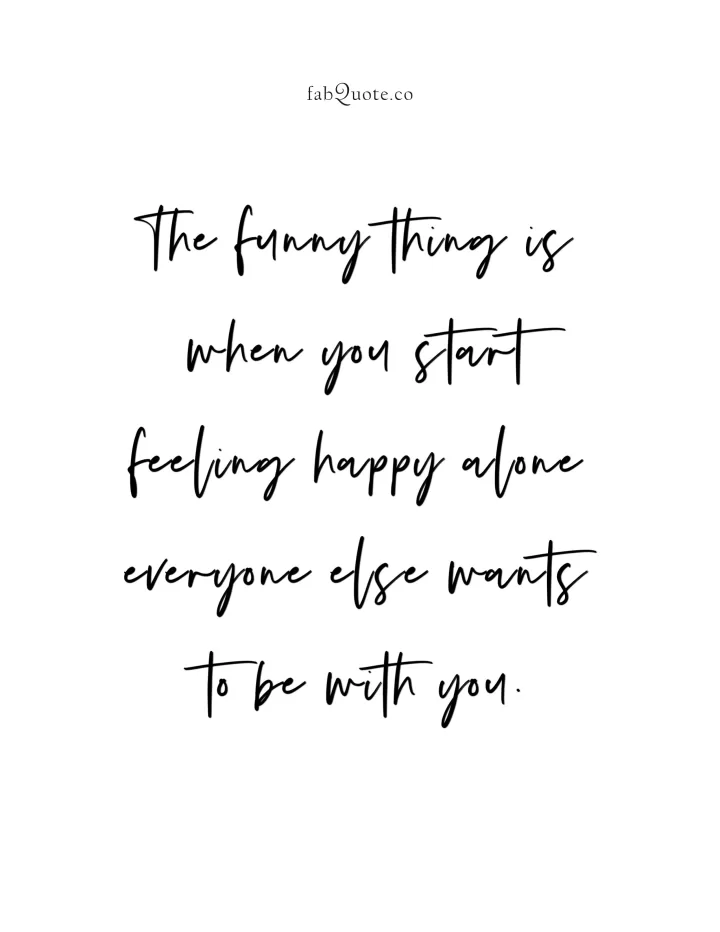 fabQuote.co
The funny thing is
when you start
feeling happy alone
everyone else wants
to be with you.